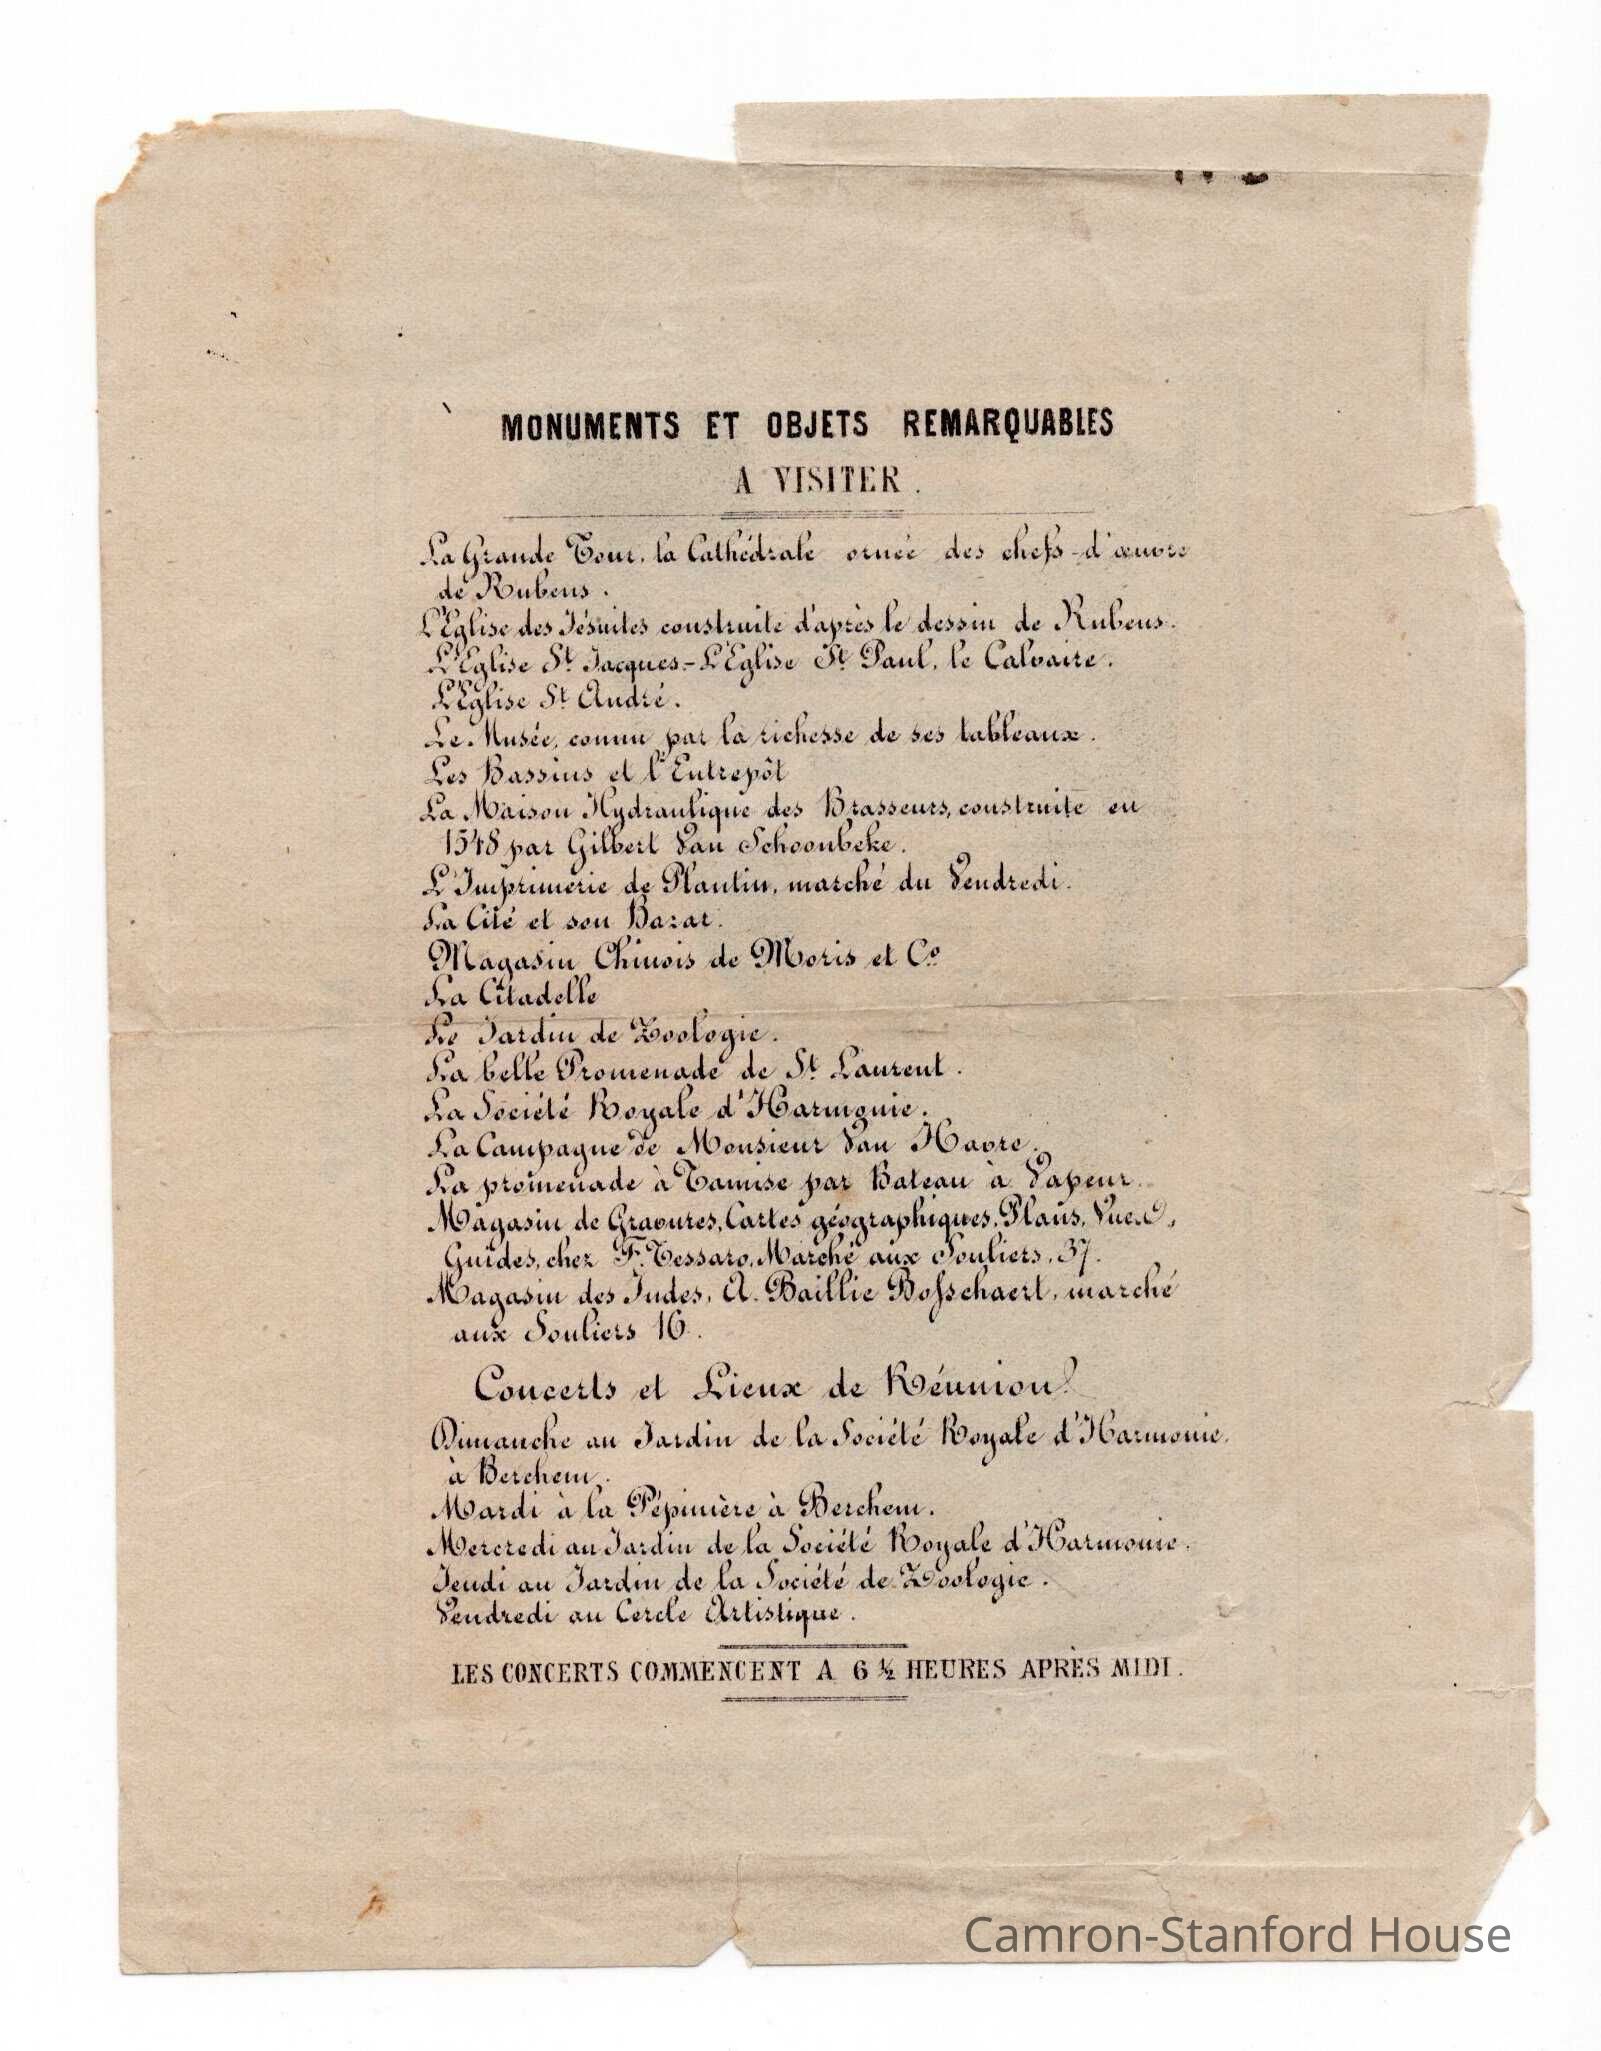 MONUMENTS ET OBJETS REMARQUABLES
A VISITER.
La Grande Tour, la Cathédrale ornée des chefs-d'œuvre
de Rubens.
L'Eglise des Jésuites construite d'après le dessin de Rubens.
L'Eglise St Jacques.-L'Eglise St Paul, le Calvaire.
L'Eglise St André.
Le Musée, connu par la richesse de ses tableaux.
Les Bassins et l'Entrepôt
La Maison Hydraulique des Brasseurs, construite en
1548 par Gilbert Van Schoonbeke.
L'Imprimerie de Plantin, marché du Vendredi.
La Cité et son Bazar.
Magasin Chinois de Moris et Co
La Citadelle
Le Jardin de Zoologie.
La belle Promenade de St Laurent.
La Société Royale d'Harmonie.
La Campagne de Monsieur Van Havre.
La promenade à Tamise par Bateau à Vapeur.
Magasin de Gravures, Cartes géographiques, Plans, Vues,
Guides, chez F. Tessaro, Marché aux Souliers, 37.
Magasin des Indes, A. Baillie Bosschaert, marché
aux Souliers 16.
Concerts et Lieux de Réunion.
Dimanche au Jardin de la Société Royale d'Harmonie.
à Berchem.
Mardi à la Pépinière à Berchem.
Mercredi au Jardin de la Société Royale d'Harmonie.
Jeudi au Jardin de la Société de Zoologie.
Vendredi au Cercle Artistique.
LES CONCERTS COMMENCENT A 6 ½ HEURES APRÈS MIDI.
Camron-Stanford House